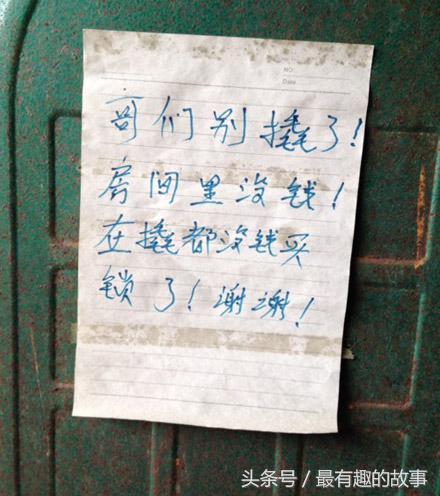 NO.
Date
哥们别撬了!
房间里没钱!
在撬都没钱买
锁了!谢谢!
头条号/最有趣的故事